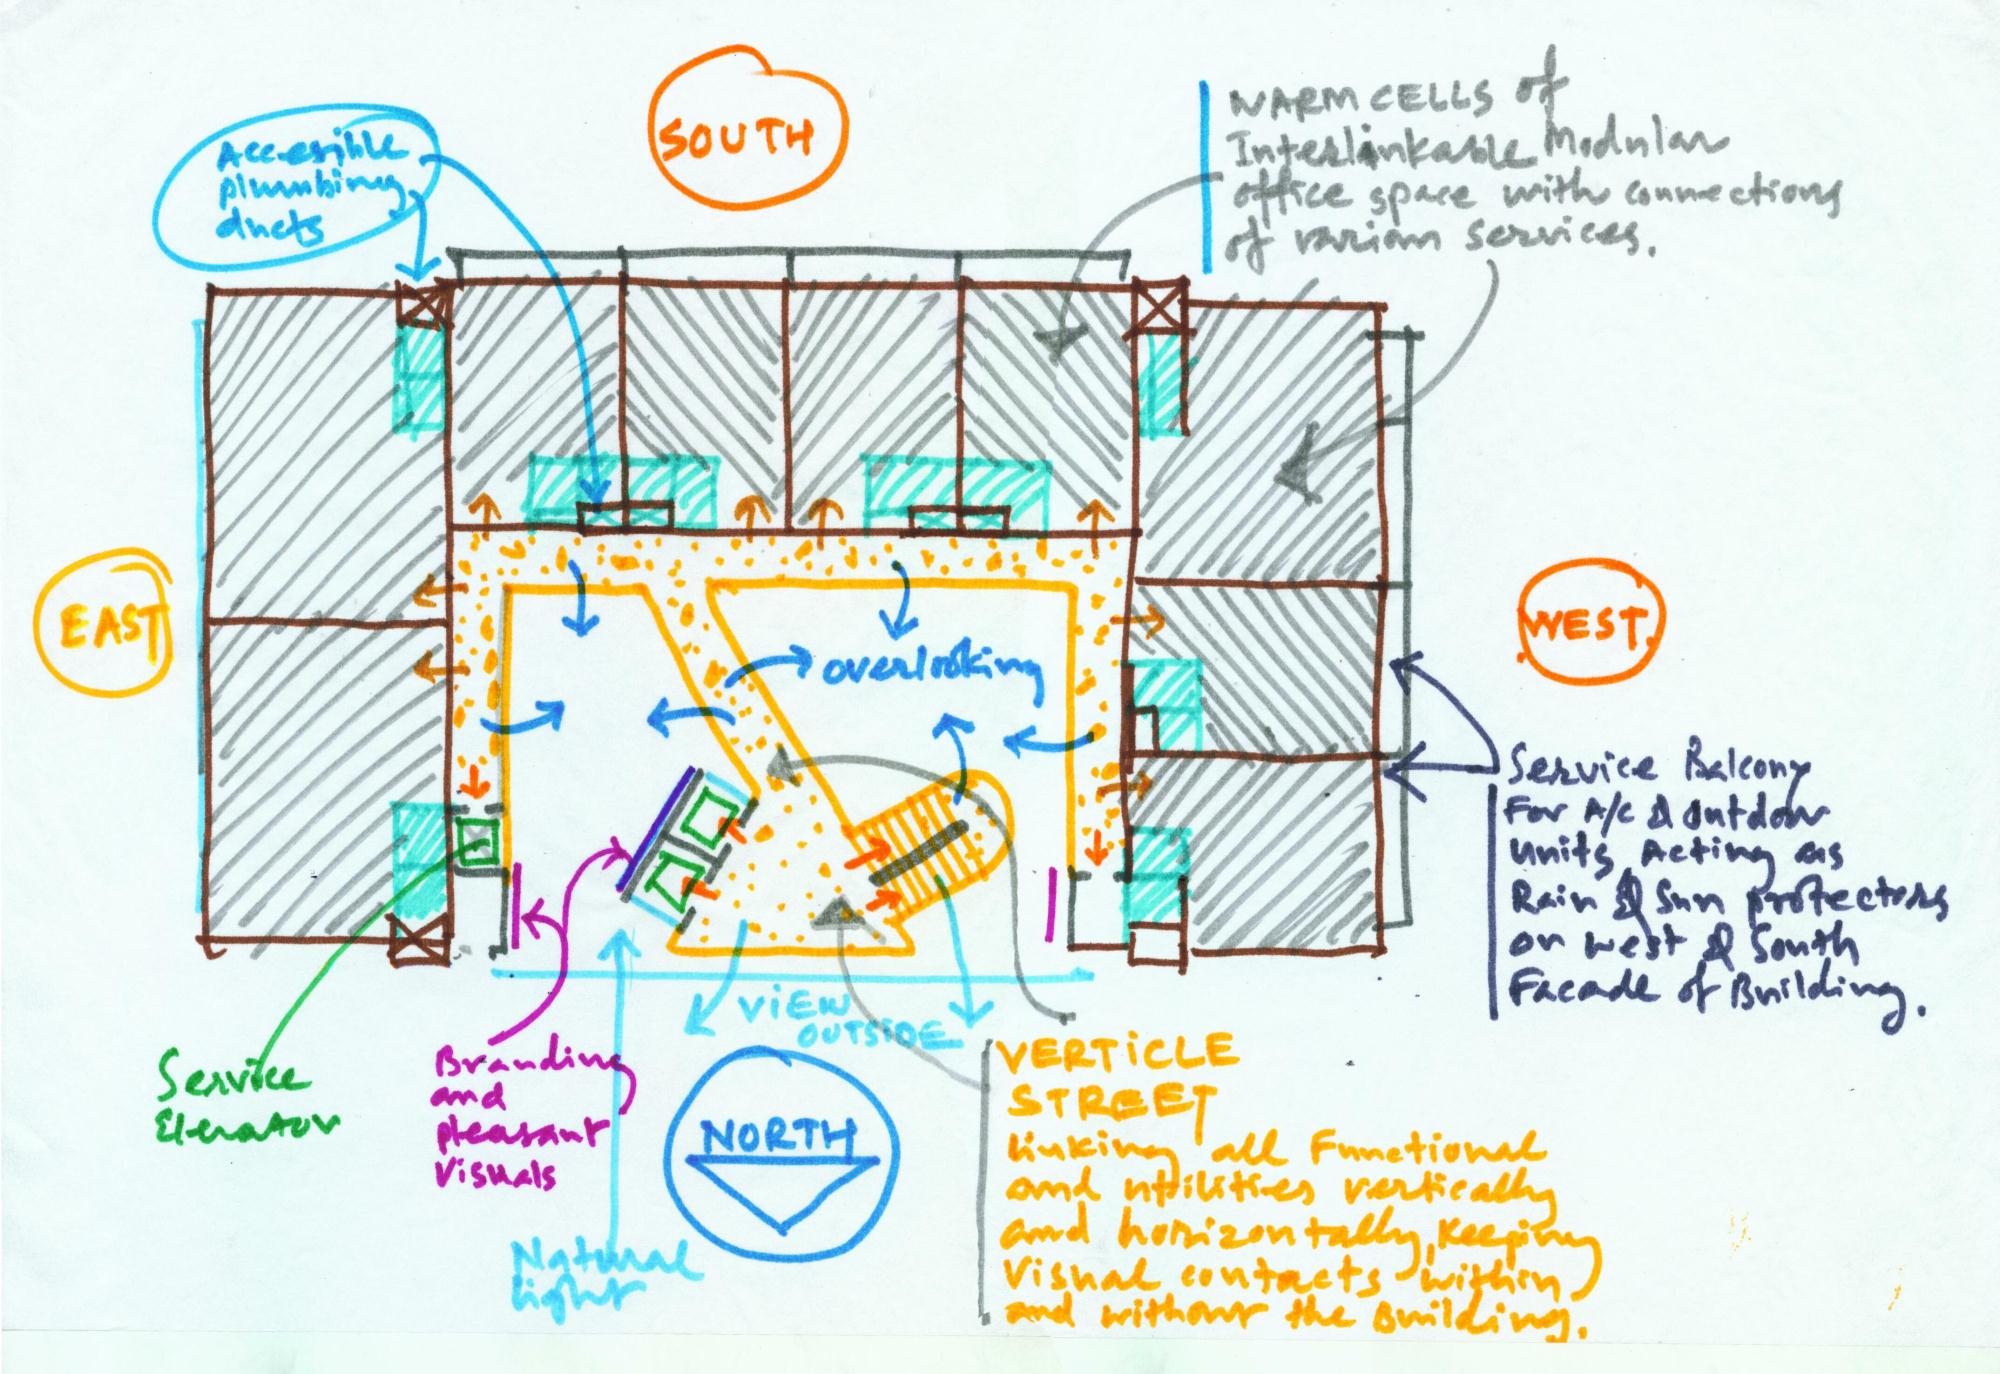 SOUTH
Accesible
plumbing
ducts
WARM CELLS of
Interlinkable Modular
office space with connections
of variom services.
EAST
WEST.
overlooking
Service Balcony
For A/c & outdoor
units, Acting as
Rain & Sun protectors
on west & South
Facade of Building.
VIEW
OUTSIDE
Service
Elevator
Branding
and
pleasant
Visuals
NORTH
Natural
light
VERTICLE
STREET
linking all Functional
and utilities vertically
and horizontally, keeping
Visual contacts within
and without the Building.